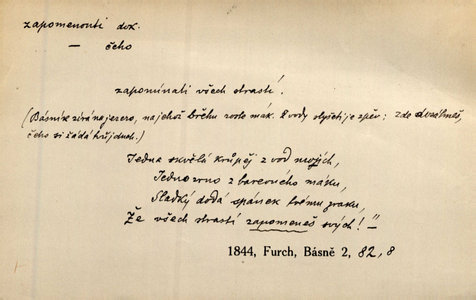 zapomenouti dok.
— čeho
zapomínati všech strastí.
(Básník zírá na jezero, na jehož břehu roste mák. Z vody slyšeti je zpěv: Zde dosáhneš,
čeho si žádá tvůj duch.)
Jedna skvělá krůpěj z vod mojich,
Jedno zrno z barevného máku,
Sladký dodá spánek tvému zraku,
Že všech strastí zapomeneš svých! "
1844, Furch, Básně 2, 82,8